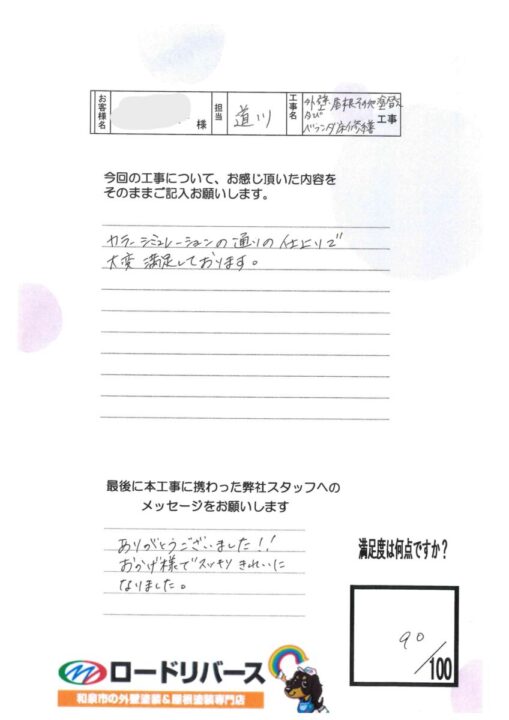 お客様名 様 担当 道川 工事名 外壁・屋根その他塗替え 及び ベランダ床修繕 工事
今回の工事について、お感じ頂いた内容を
そのままご記入お願いします。
カラーシミュレーションの通りの仕上りで
大変満足しております。
最後に本工事に携わった弊社スタッフへの
メッセージをお願いします
ありがとうございました!!
おかげ様でスッキリきれいに
なりました。
満足度は何点ですか?
90
/100
ロードリバース
和泉市の外壁塗装&屋根塗装専門店